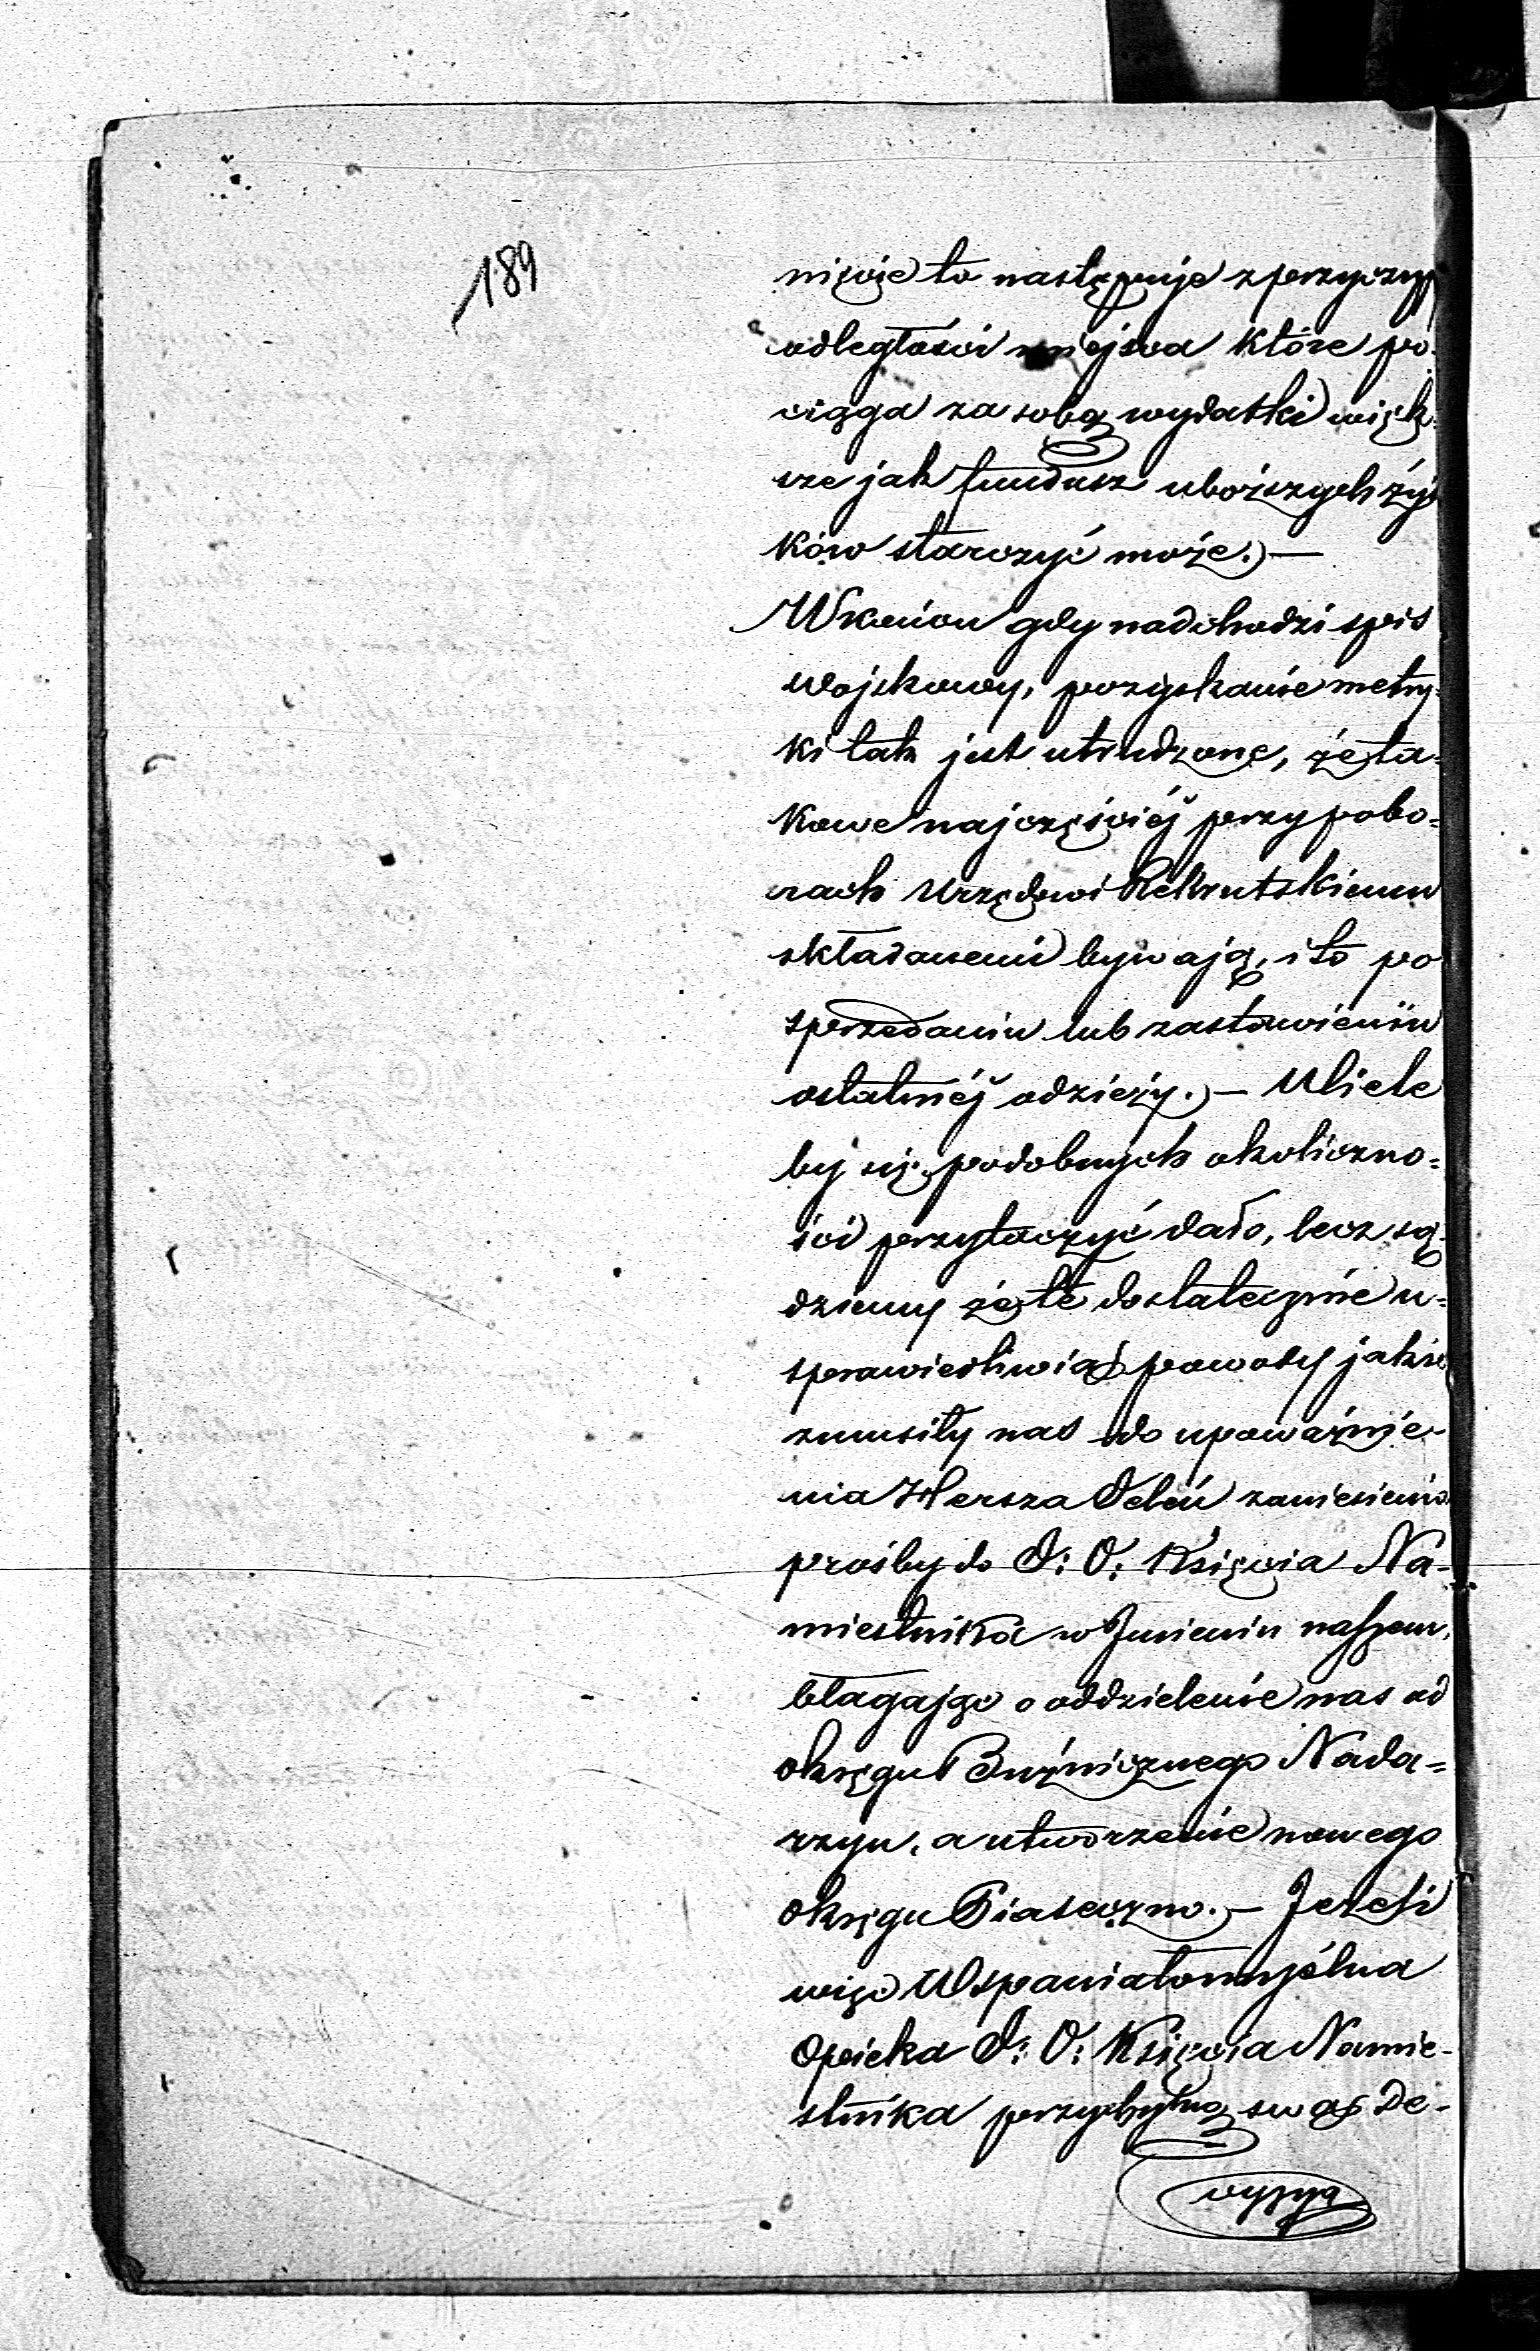 189
nięcie to następuje z przyczyn
odległości miejsca które po-
ciąga za sobą wydatki więk-
sze jak fundusz uboższych żyd
ków starczyć może. —
W końcu gdy nadchodzi spis
wojskowy, pozyskanie metry-
ki tak jest utrudzone, że ta-
kowe najczęściéj przy pobo-
rach Urzędowi Rekrutskiemu
składanemi bywają, i to po
sprzedaniu lub zastawieniu
ostatniéj odzieży. — Wiele
by się podobnych okoliczno-
ści przytaczyć dało, lecz są-
dziemy że te dostatecznie u-
sprawiedliwią powody jakie
zmusiły nas do upoważnie-
nia Hersza zaniesienia
prośby do J: O: Księcia Na-
miestnika w Imieniu naszem,
błagając o oddzielenie nas od
okręgu Bużnicznego Nada-
rzyn, a utworzenie nowego
okręgu Piaseczno. — Jeżeli
więc Wspaniałomyślna
Opieka J: O: Księcia Namie-
stnika przychylną swą De-
cyzyą